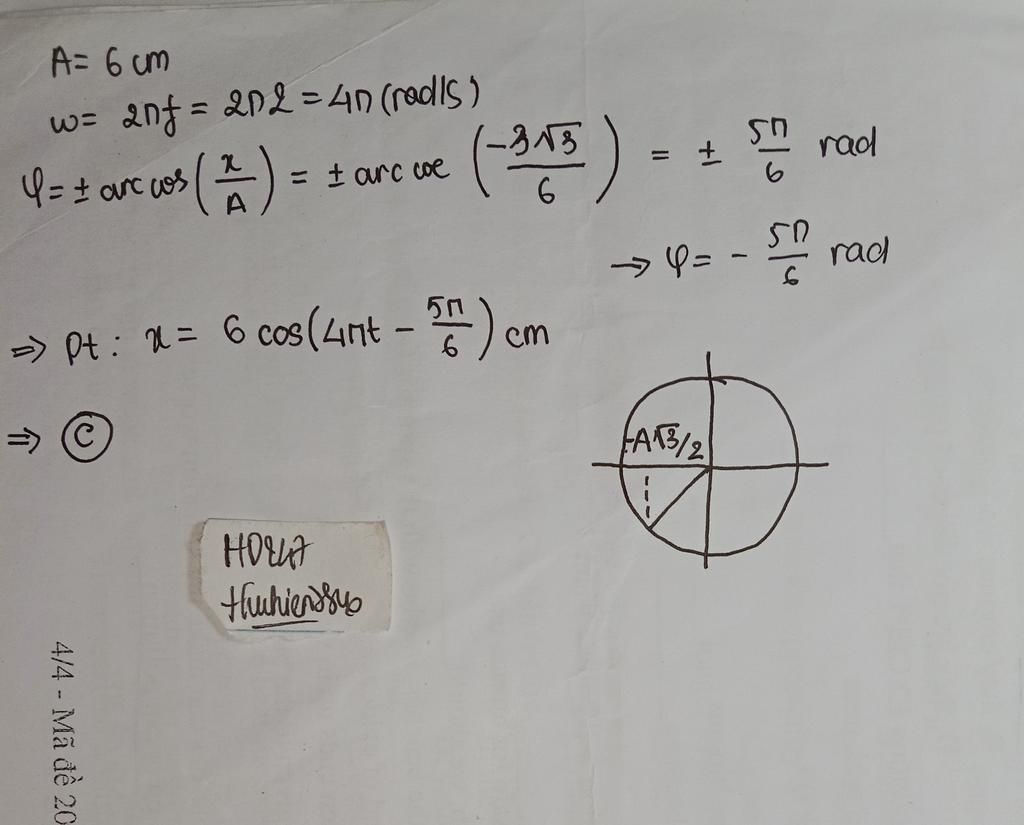 A= 6 cm
ω= 2πf = 2π2 = 4π (rad/s)
φ= ± arc cos(x/A) = ± arc coe (-3√3/6) = ± 5π/6 rad
→ φ= - 5π/6 rad
=> pt: x= 6 cos(4πt - 5π/6) cm
=> C
-A√3/2
4/4 - Mã đề 20